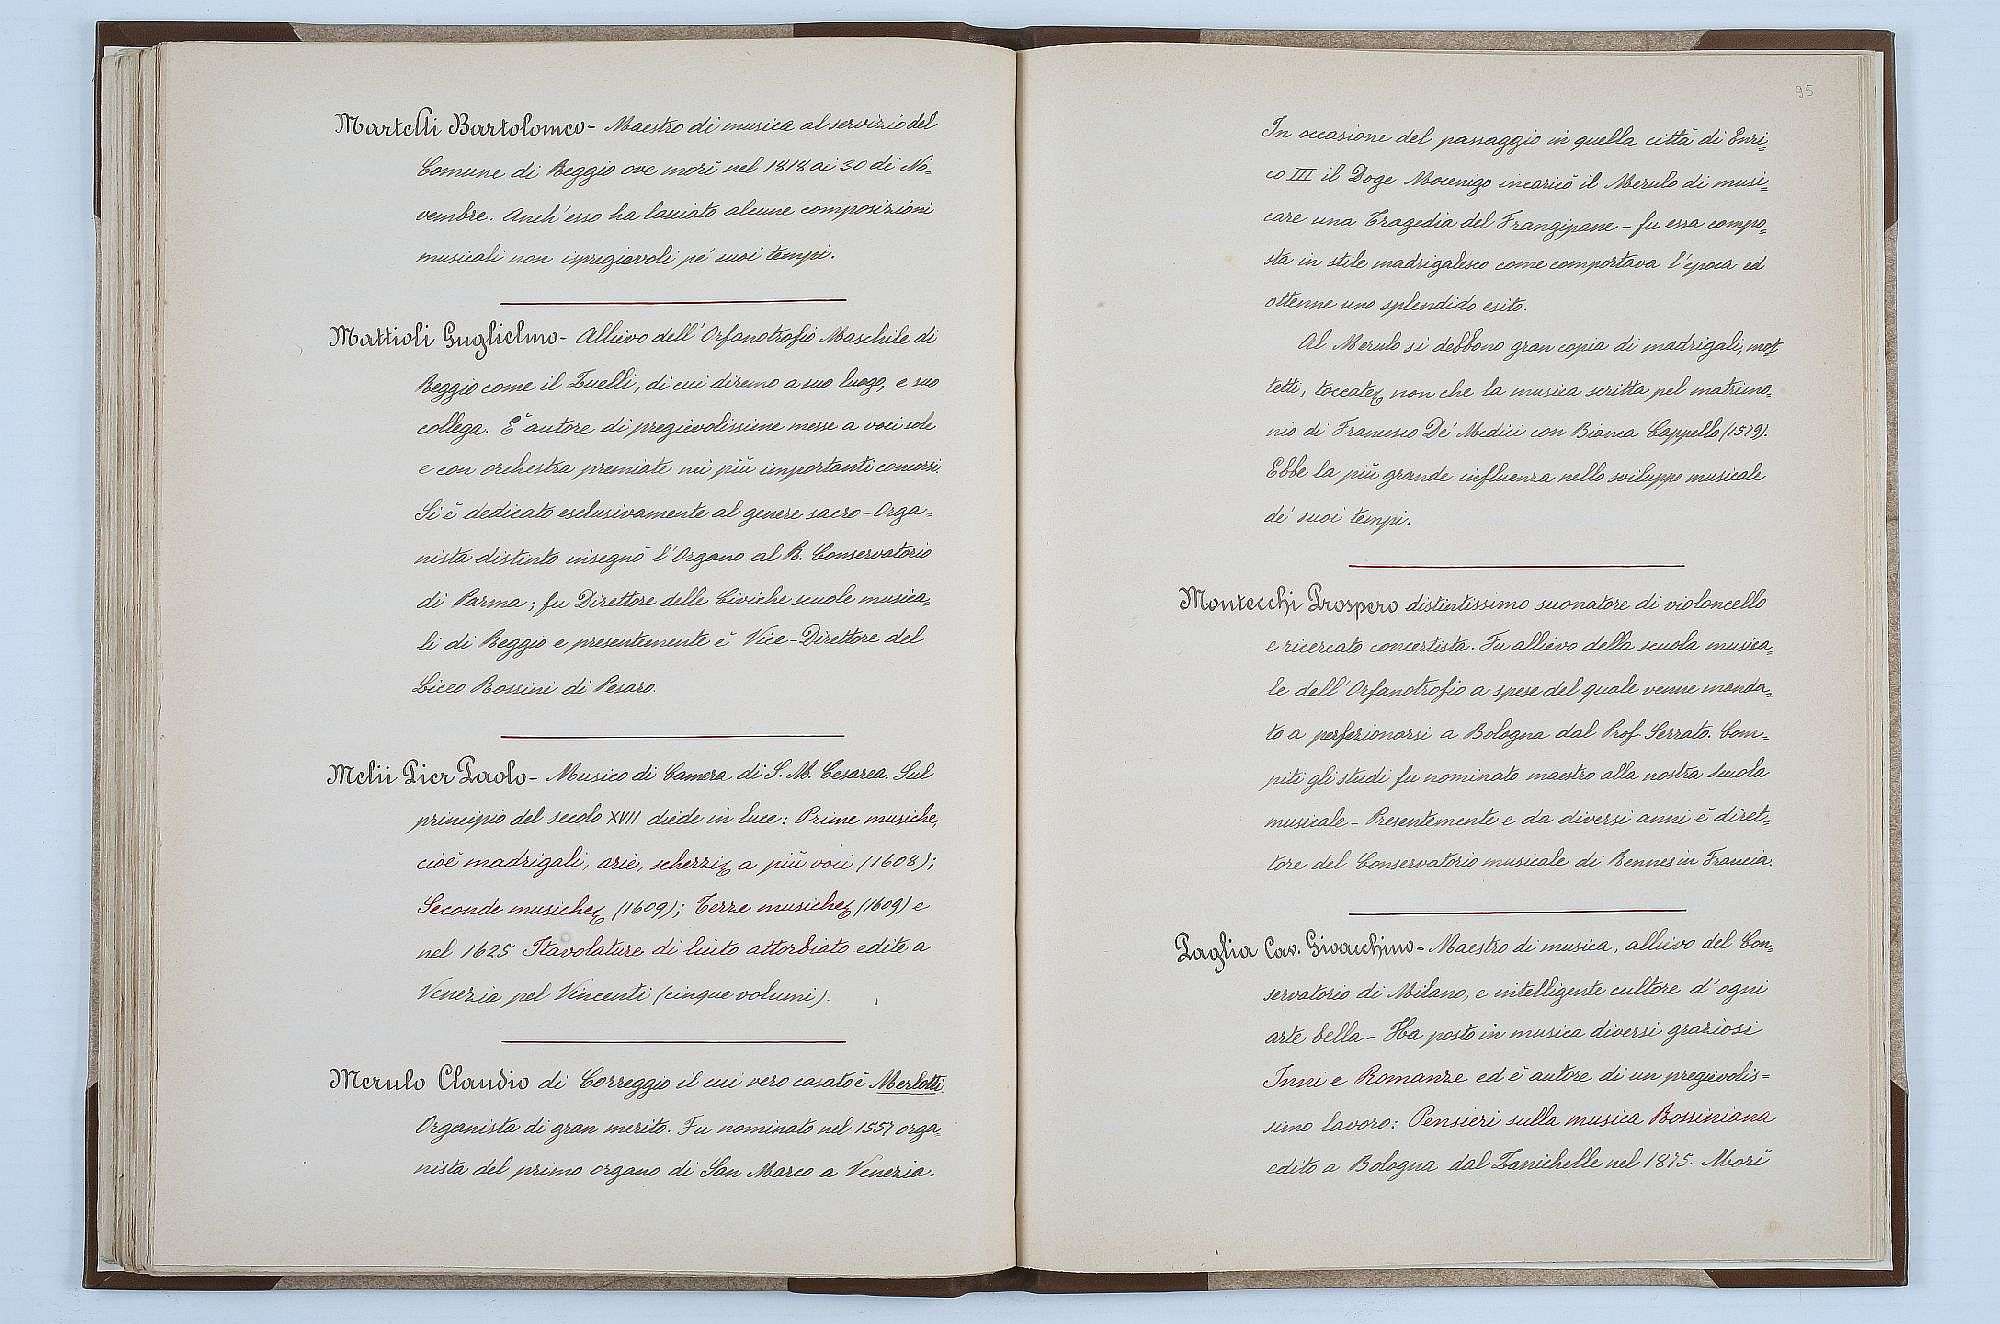 Martelli Bartolomeo - Maestro di musica al servizio del
Comune di Reggio ove morì nel 1818 ai 30 di No-
vembre. Anch'esso ha lasciato alcune composizioni
musicali non ispregievoli pe' suoi tempi.
Mattioli Guglielmo - Allievo dell'Orfanotrofio Maschile di
Reggio come il Zuelli, di cui diremo a suo luogo, e suo
collega. È autore di pregievolissime messe a voci sole
e con orchestra premiate nei più importanti concorsi.
Si è dedicato esclusivamente al genere sacro - Orga-
nista distinto insegnò l'Organo al R. Conservatorio
di Parma; fu Direttore delle Civiche scuole musica-
li di Reggio e presentemente è Vice-Direttore del
Liceo Rossini di Pesaro.
Melii Pier Paolo - Musico di Camera di S. M. Cesarea. Sul
principio del secolo XVII diede in luce: Prime musiche,
cioè madrigali, arie, scherzi & a più voci (1608);
Seconde musiche & (1609); Terze musiche & (1609) e
nel 1625 Itavolature di liuto attorbiato edite a
Venezia pel Vincenti (cinque volumi).
Merulo Claudio di Correggio il cui vero casato è Merlotti.
Organista di gran merito. Fu nominato nel 1557 orga-
nista del primo organo di San Marco a Venezia.
95
In occasione del passaggio in quella città di Enri-
co III il Doge Mocenigo incaricò il Merulo di musi-
care una Tragedia del Frangipane - fu essa compo-
sta in stile madrigalesco come comportava l'epoca ed
ottenne uno splendido esito.
Al Merulo si debbono gran copia di madrigali, mot-
tetti, toccate & non che la musica scritta pel matrimo-
nio di Francesco De' Medici con Bianca Cappello (1579).
Ebbe la più grande influenza nello sviluppo musicale
de' suoi tempi.
Montecchi Prospero distintissimo suonatore di violoncello
e ricercato concertista. Fu allievo della scuola musica-
le dell'Orfanotrofio a spese del quale venne manda-
to a perfezionarsi a Bologna dal Prof. Serrato. Com-
piti gli studi fu nominato maestro alla nostra scuola
musicale - Presentemente e da diversi anni è diret-
tore del Conservatorio musicale di Rennes in Francia.
Paglia Cav. Gioacchino - Maestro di musica, allievo del Con-
servatorio di Milano, e intelligente cultore d'ogni
arte bella - Ha posto in musica diversi graziosi
Inni e Romanze ed è autore di un pregievolis-
simo lavoro: Pensieri sulla musica Rossiniana
edito a Bologna dal Zanichelle nel 1875. Morì